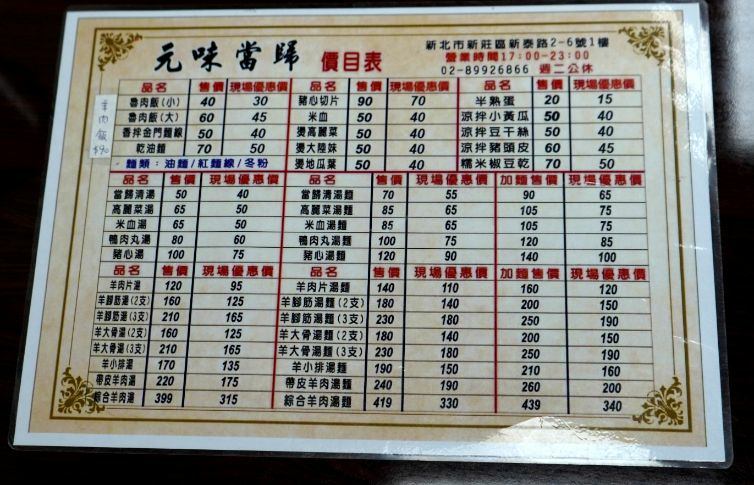 元味當歸 價目表
新北市新莊區新泰路2-6號1樓
營業時間17:00-23:00
02-89926866 週二公休
羊肉飯 $90
品名 售價 現場優惠價 品名 售價 現場優惠價 品名 售價 現場優惠價
魯肉飯(小) 40 30 豬心切片 90 70 半熟蛋 20 15
魯肉飯(大) 60 45 米血 50 40 涼拌小黃瓜 50 40
香拌金門麵線 50 40 燙高麗菜 50 40 涼拌豆干絲 50 40
乾油麵 70 50 燙大陸妹 50 40 涼拌豬頭皮 60 45
麵類：油麵/紅麵線/冬粉 燙地瓜葉 50 40 糯米椒豆乾 70 50
品名 售價 現場優惠價 品名 售價 現場優惠價 加麵售價 現場優惠價
當歸清湯 50 40 當歸清湯麵 70 55 90 65
高麗菜湯 65 50 高麗菜湯麵 85 65 105 75
米血湯 65 50 米血湯麵 85 65 105 75
鴨肉丸湯 80 60 鴨肉丸湯麵 100 75 120 85
豬心湯 100 75 豬心湯麵 120 90 140 100
品名 售價 現場優惠價 品名 售價 現場優惠價 加麵售價 現場優惠價
羊肉片湯 120 95 羊肉片湯麵 140 110 160 120
羊腳筋湯(2支) 160 125 羊腳筋湯麵(2支) 180 140 200 150
羊腳筋湯(3支) 210 165 羊腳筋湯麵(3支) 230 180 250 190
羊大骨湯(2支) 160 125 羊大骨湯麵(2支) 180 140 200 150
羊大骨湯(3支) 210 165 羊大骨湯麵(3支) 230 180 250 190
羊小排湯 170 135 羊小排湯麵 190 150 210 160
帶皮羊肉湯 220 175 帶皮羊肉湯麵 240 190 260 200
綜合羊肉湯 399 315 綜合羊肉湯麵 419 330 439 340